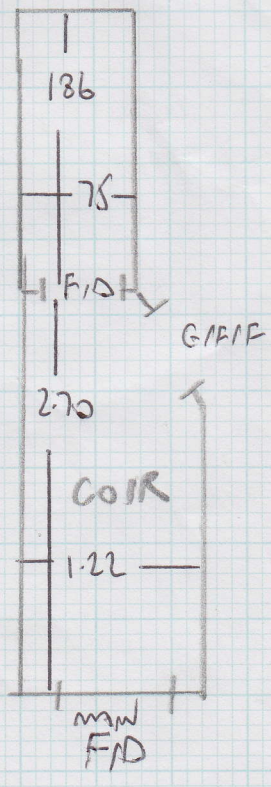 186
75
F/D
G/F/F
2.70
COIR
1.22
MAIN
F/D